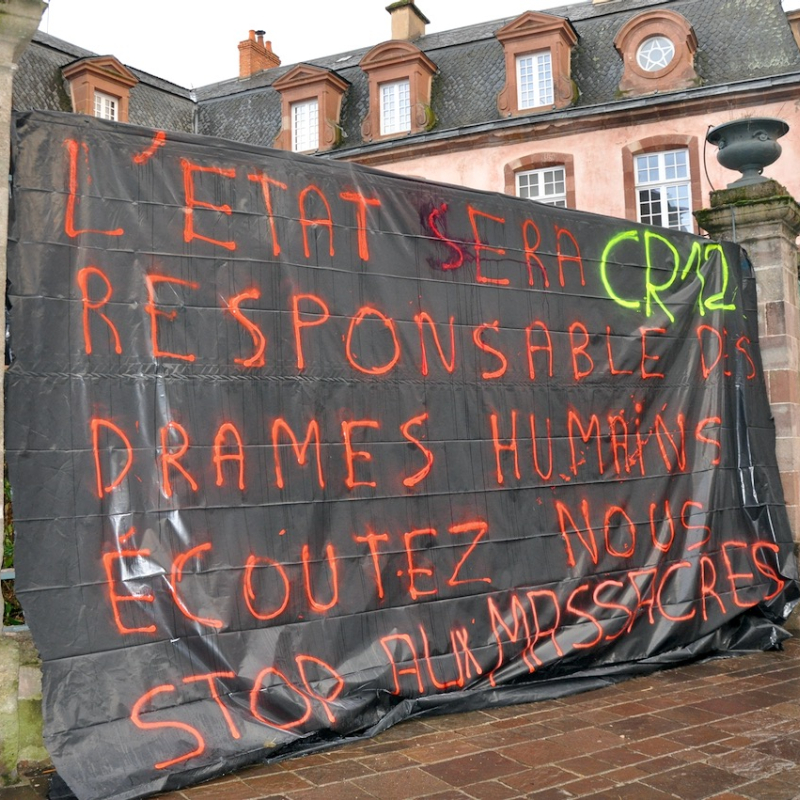 L'ETAT SERA CR12
RESPONSABLE DES
DRAMES HUMAINS
ÉCOUTEZ NOUS
STOP AUX MASSACRES